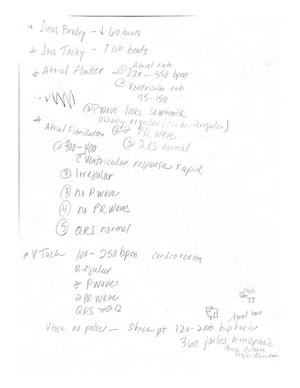 * Sinus Brady - ↓ 60 beats
* Sinus Tachy - ↑ 100 beats
* Atrial Flutter - ① Atrial rate
220 - 350 bpm
② Ventricular rate
75-150
③ P wave looks sawtooth
usually regular (can be irregular)
④ PR wave
⑤ QRS normal
* Atrial Fibrillation
① 300-400
c Ventricular response rapid
② Irregular
③ no P wave
④ no PR wave
⑤ QRS normal
* V Tach 100-250 bpm cardioversion
Regular
P wave
PR wave
QRS > 0.12
Vtach no pulse - shock pt 120-200 biphasic
360 joules monophasic